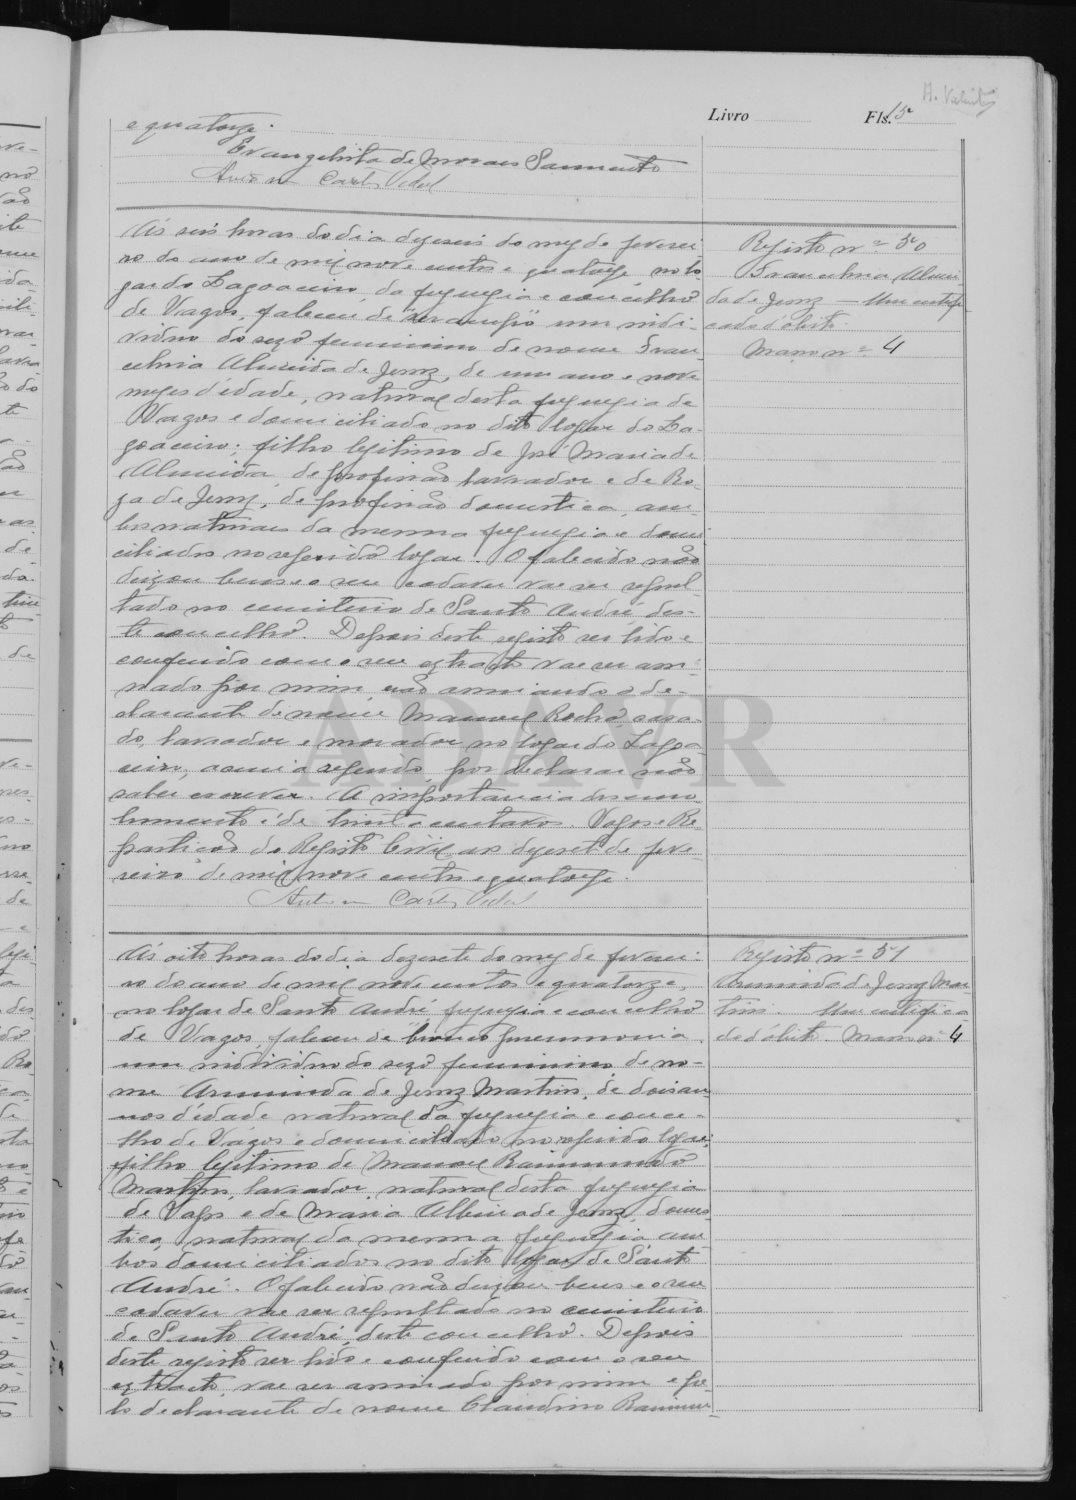 Livro Fls. 15
e quatorze.
Evangelista de Moraes Sarmento
Antonio Carlos Vidal
Ás seis horas do dia dezeseis do mez de feverei-
ro do anno de mil nove centos e quatorze, no lo
gar do Lagoaceiro, da freguezia e concelho
de Vagos, faleceu de um indi-
viduo do sexo feminino de nome Fran-
celina Almeida de Jesuz, de um ano e nove
mezes d'edade, natural desta freguezia de
Vagos e domiciliado no dito logar do La-
goaceiro; filho legitimo de José Maria de
Almeida, de profissão lavrador e de Ro-
za de Jesuz, de profissão domestica, am-
bos naturaes da mesma freguezia e domi
ciliados no referido logar. O falecido não
deixou bens e o seu cadaver vae ser sepul
tado no cemiterio de Santo André des-
te concelho. Depois deste registo ser lido e
conferido com o seu extracto vae ser assi-
nado por mim, não assinando o de-
clarante de nome Manuel Rocha, casa-
do, lavrador e morador no logar do Lagoa
ceiro, acima referido, por declarar não
saber escrever. A importancia dos emo-
lumentos é de trinta centavos. Vagos e Re-
partição do Registo Civil, aos dezesete de feve-
reiro de mil nove centos e quatorze.
Antonio Carlos Vidal
Registo nº 50
Francelina Almei
da de Jesuz — Um certifi
cado d'obito.
Masso nº 4
Ás oito horas do dia dezesete do mez de feverei-
ro do anno de mil nove centos e quatorze,
no logar de Santo André freguezia e concelho
de Vagos, faleceu de bronco pneumonia
um individuo do sexo feminino, de no-
me Arminda de Jesuz Martins, de dois an-
nos d'edade natural da freguezia e conce-
lho de Vagos e domiciliado no referido logar,
filho legitimo de Manoel Raimundo
Martins, lavrador, natural desta freguezia
de Vagos e de Maria Albina de Jesuz, domes
tica, natural da mesma freguezia, am
bos domiciliados no dito logar de Santo
André. O falecido não deixou bens e o seu
cadaver vae ser sepultado no cemiterio
de Santo André, deste concelho. Depois
deste registo ser lido e conferido com o seu
extracto vae ser assinado por mim e pe-
lo declarante de nome Claudino Raimun-
Registo nº 51
Arminda de Jesuz Mar-
tins. Um certifica
do d'obito Masso nº 4
ADAVR